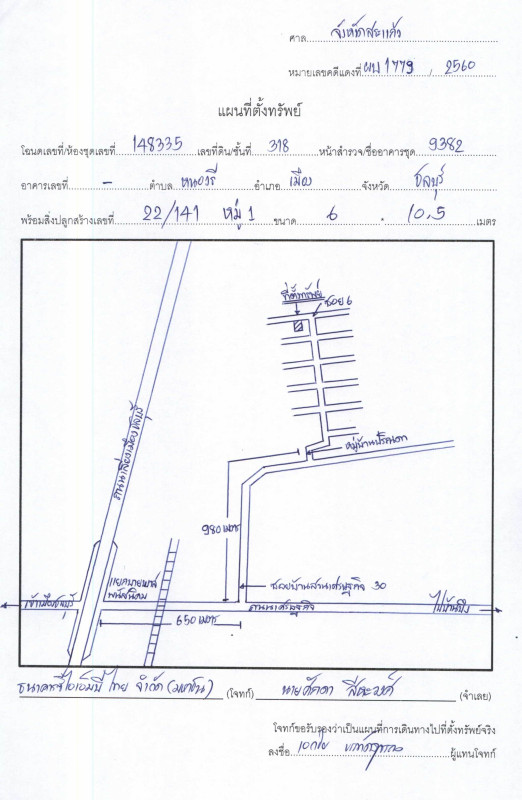 ศาล จังหวัดสระแก้ว
หมายเลขคดีแดงที่ ผบ 1779 / 2560
แผนที่ตั้งทรัพย์
โฉนดเลขที่/ห้องชุดเลขที่ 148335 เลขที่ดิน/ชั้นที่ 318 หน้าสำรวจ/ชื่ออาคารชุด 9382
อาคารเลขที่ - ตำบล หนองรี อำเภอ เมือง จังหวัด ชลบุรี
พร้อมสิ่งปลูกสร้างเลขที่ 22/141 หมู่ 1 ขนาด 6 . 10.5 เมตร
ที่ตั้งทรัพย์ ซอย 6
ถนนเลี่ยงเมืองชลบุรี
หมู่บ้าน
980 เมตร
แยกบายพาส
พนัสนิคม
ซอยบ้านสวนเศรษฐกิจ 30
เข้าเมืองชลบุรี
ถนนเศรษฐกิจ
ไปบ้านบึง
650 เมตร
ธนาคารซีไอเอ็มบี ไทย จำกัด (มหาชน) (โจทก์) นาย (จำเลย)
โจทก์ขอรับรองว่าเป็นแผนที่การเดินทางไปที่ตั้งทรัพย์จริง
ลงชื่อ ผู้แทนโจทก์